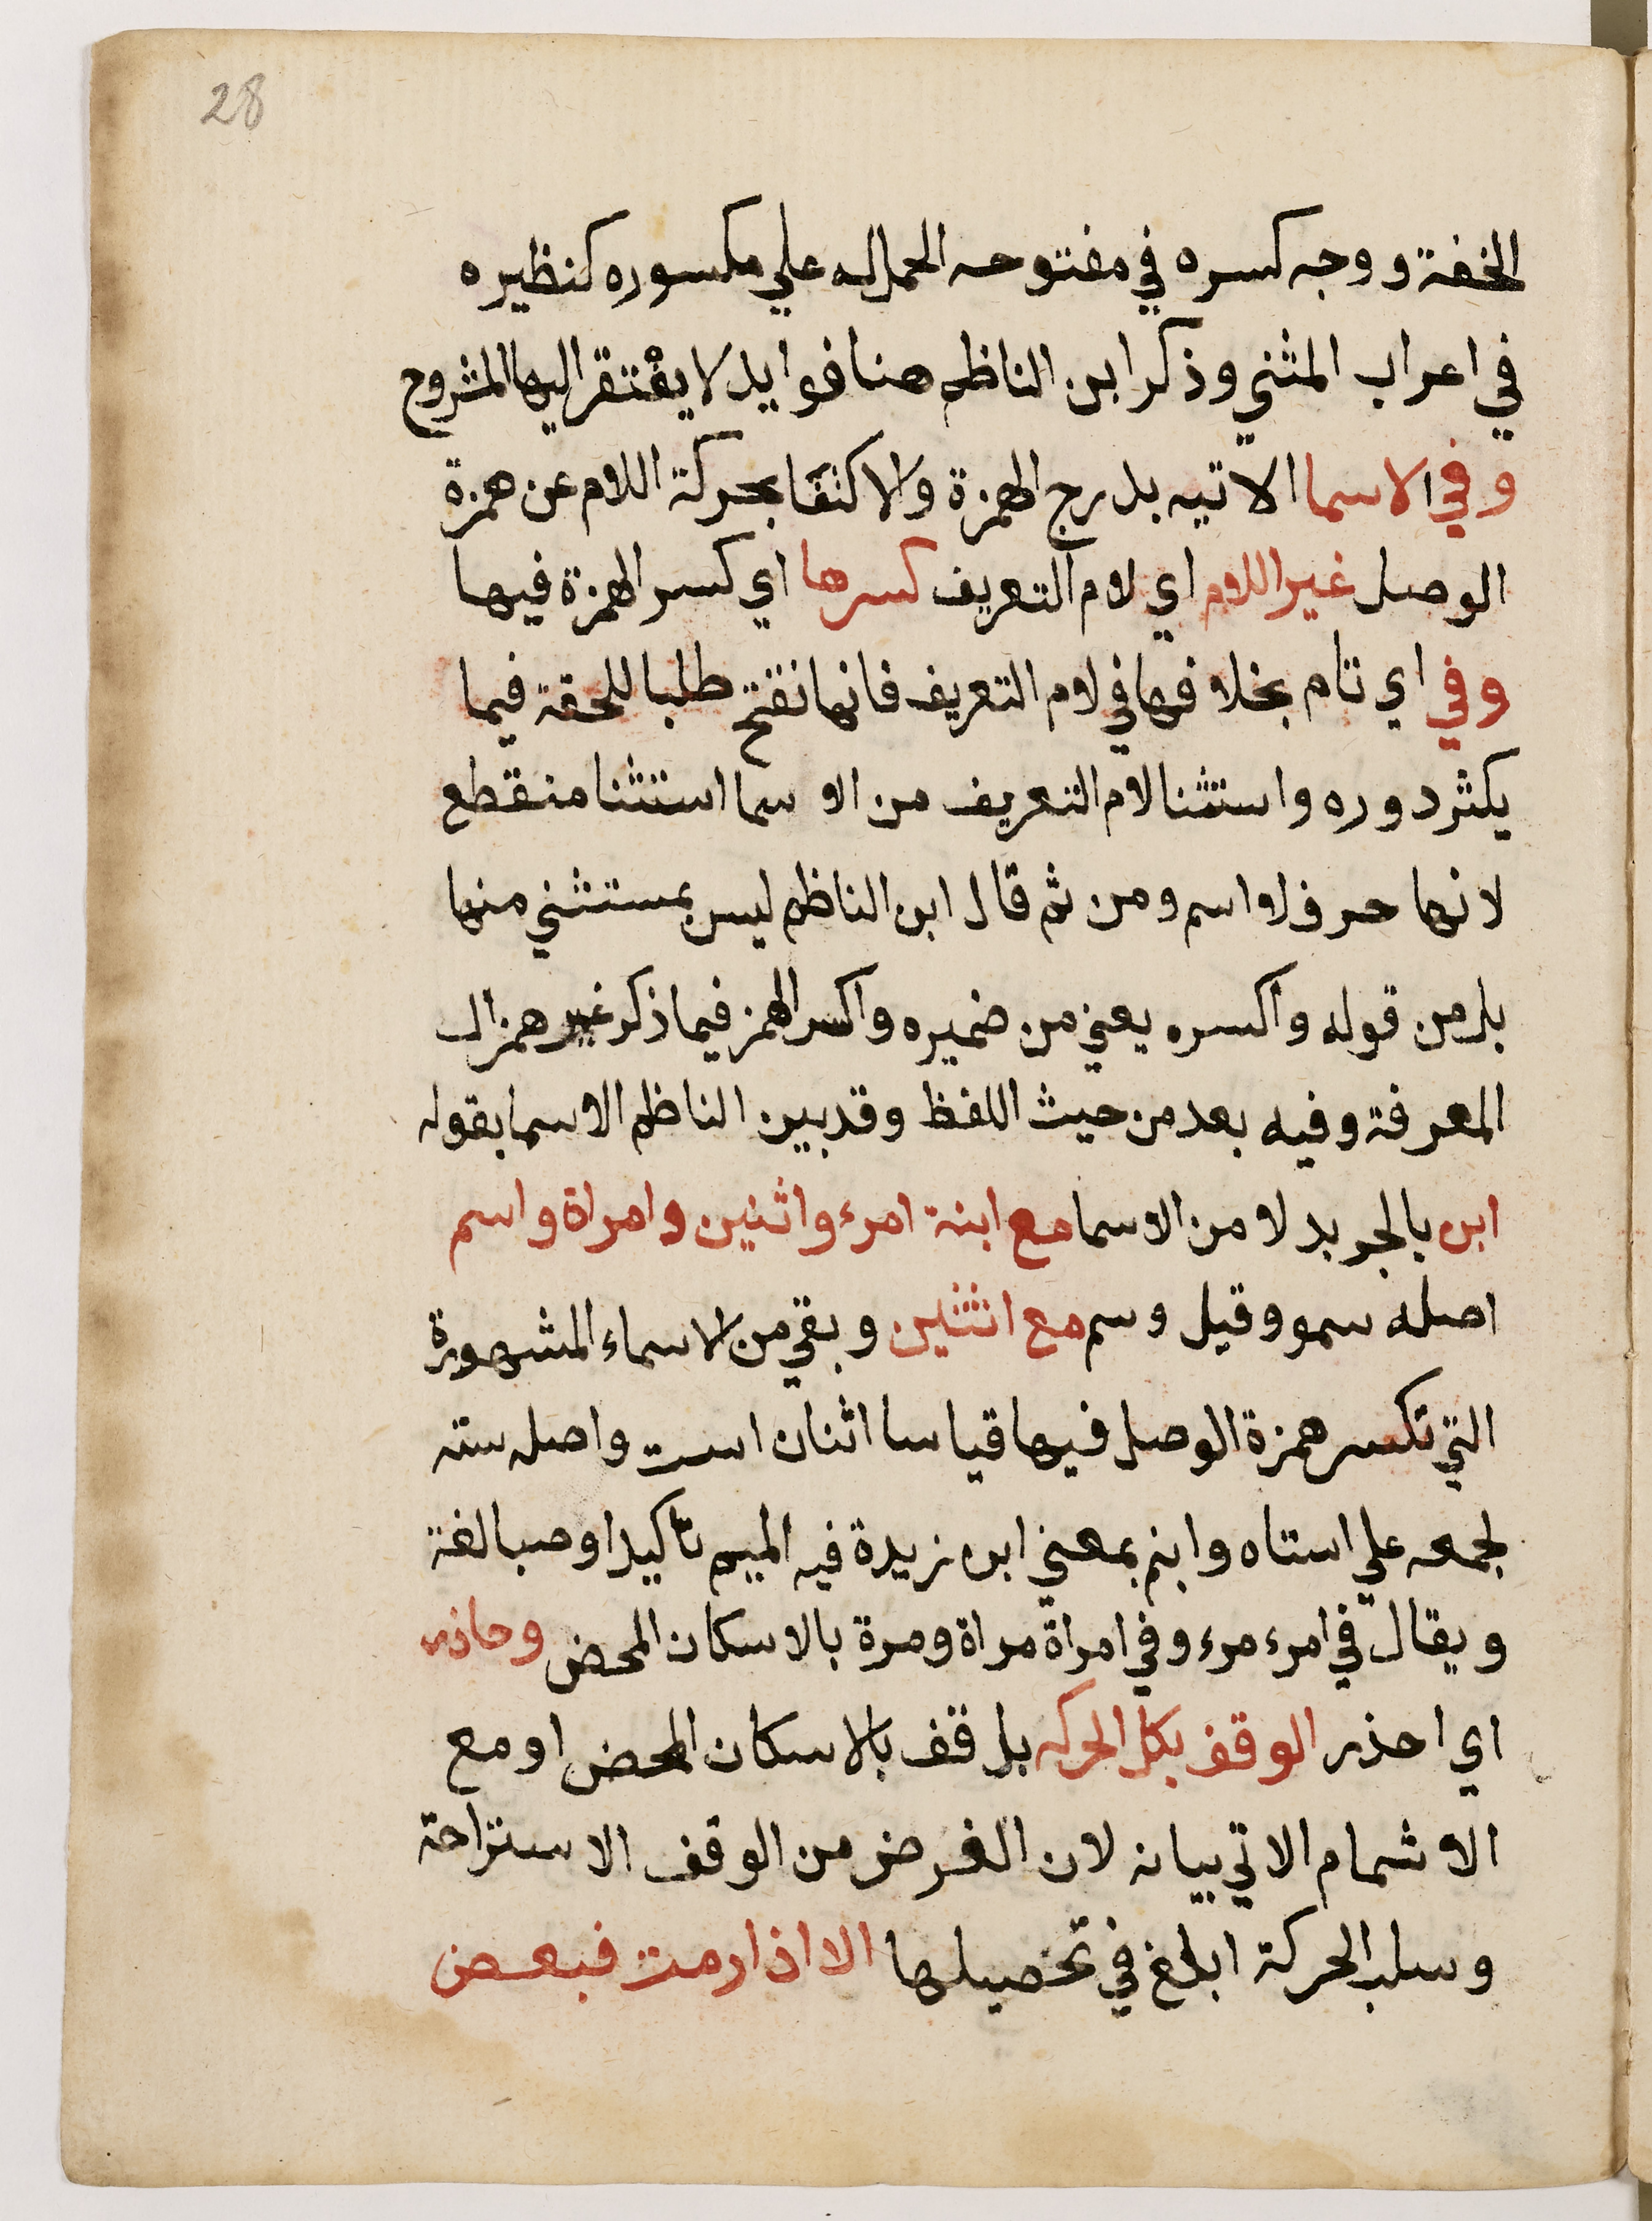 28
الخفة ووجه كسره في مفتوحه الحمل له علي مكسوره كنظيره
في اعراب المثني وذكر ابن الناظم هنا فوايد لا يفتقر اليها المشروح
وفي الاسما الاتيه بدرج الهمزة والاكتفا بحركة اللام عن همزة
الوصل غير اللام اي لام التعريف كسرها اي كسر الهمزة فيها
وفي اي تام بخلافها في لام التعريف فانها تفتح طلبا للحقة فيما
يكثر دوره واستثنا لام التعريف من الاسما استثنا منقطع
لانها حرف لا اسم ومن ثم قال ابن الناظم ليس بمستثني منها
بل من قوله واكسره يعني من ضميره واكسر الهمز فيما ذكر غير همز ال
المعرفة وفيه بعد من حيث اللفظ وقد بين الناظم الاسما بقوله
ابن بالجر بدلا من الاسما مع ابنة امرء واثنين وامراة واسم
اصله سمو وقيل وسم مع اثنتين وبقي من الاسماء المشهورة
التي تكسر همزة الوصل فيها قياسا اثنان است واصله سته
لجمعه علي استاه وابنم بمعني ابن زيدة فيه الميم تاكيدا ومبالغة
ويقال في امرء مرء وفي امراة مراة ومرة بالاسكان المحض وحاذر
اي احذر الوقف بكل الحركه بل قف بالاسكان المحض او مع
الاشمام الاتي بيانه لان الغرض من الوقف الاستراحة
وسلب الحركة ابلغ في تحصيلها الا اذا رمت فبعض